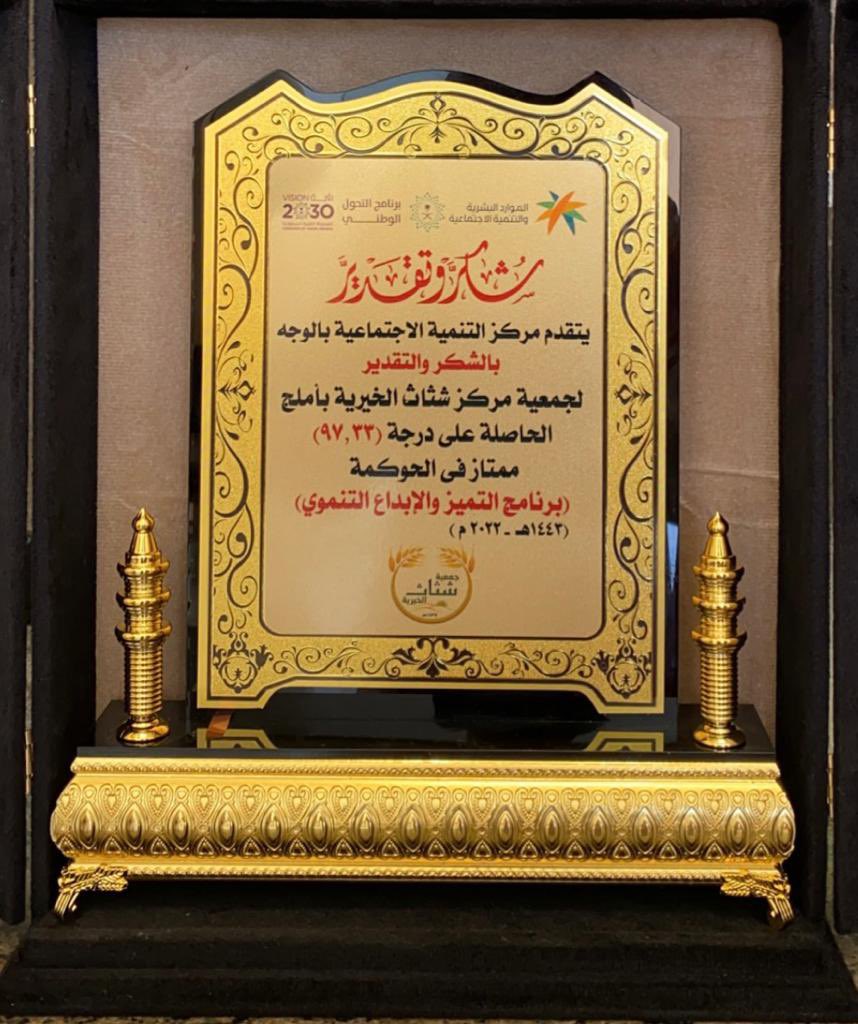 الموارد البشرية
والتنمية الاجتماعية
برنامج التحول
الوطني
VISION رؤية
2030
المملكة العربية السعودية
KINGDOM OF SAUDI ARABIA
شكر وتقدير
يتقدم مركز التنمية الاجتماعية بالوجه
بالشكر والتقدير
لجمعية مركز شثاث الخيرية بأملج
الحاصلة على درجة (٩٧,٣٣)
ممتاز في الحوكمة
(برنامج التميز والإبداع التنموي)
(١٤٤٣هـ - ٢٠٢٢ م)
جمعية
شثاث
الخيرية